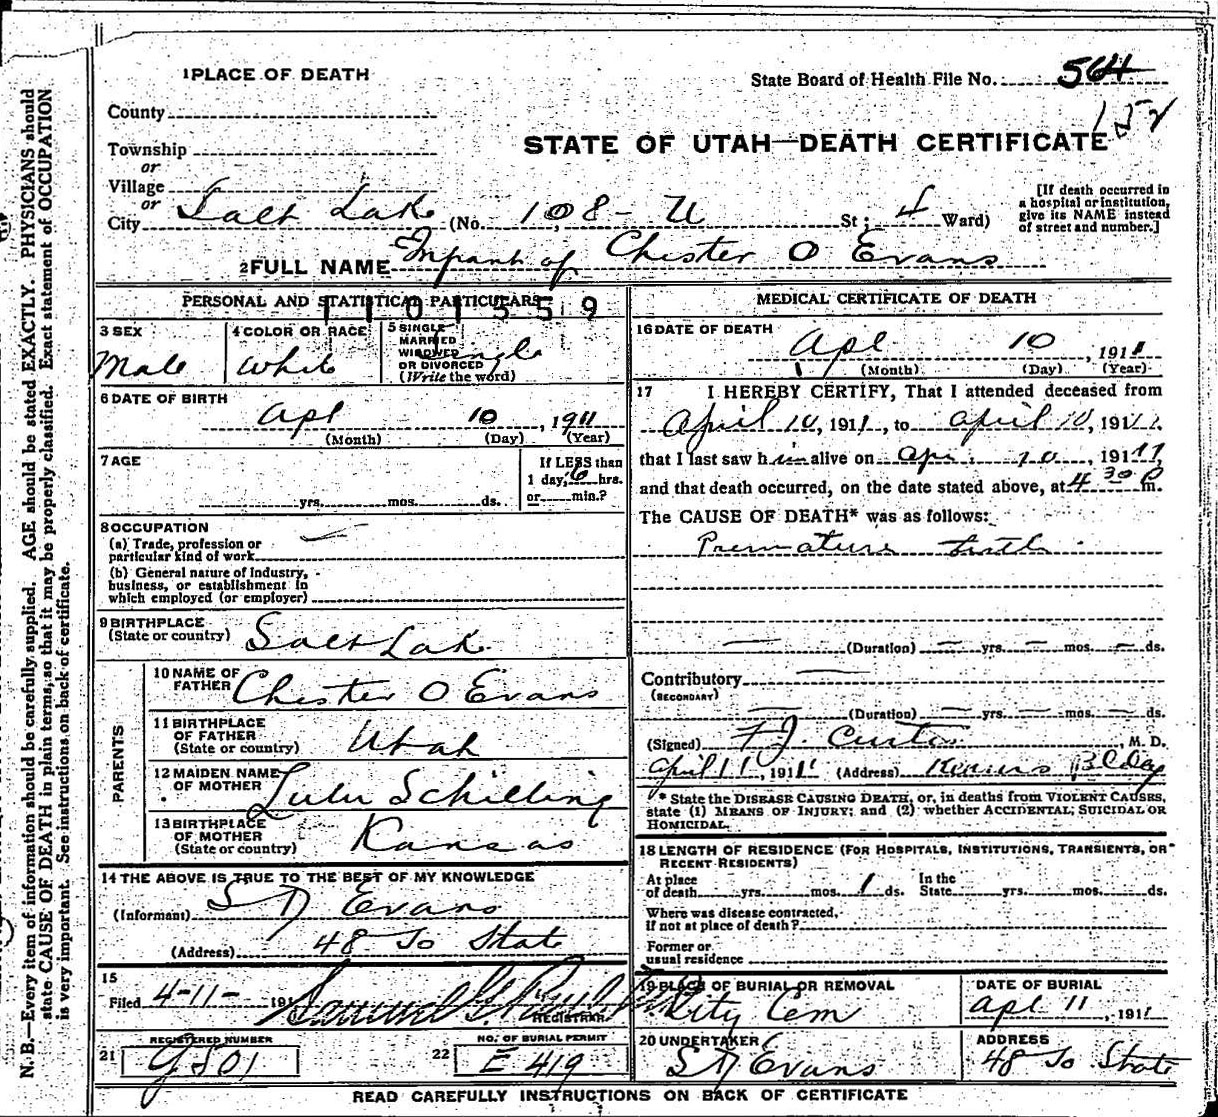 1 PLACE OF DEATH
State Board of Health File No. 564
152
County
Township
or
Village
or
City Salt Lake (No. 108 - U St; 4 Ward)
STATE OF UTAH—DEATH CERTIFICATE
[If death occurred in
a hospital or institution,
give its NAME instead
of street and number.]
2 FULL NAME Infant of Chester O Evans
PERSONAL AND STATISTICAL PARTICULARS
1101559
3 SEX
Male
4 COLOR OR RACE
White
5 SINGLE
MARRIED
WIDOWED
OR DIVORCED
(Write the word)
Single
6 DATE OF BIRTH
Apl 10, 1911
(Month) (Day) (Year)
7 AGE
yrs. mos. ds.
If LESS than
1 day, 6 hrs.
or min.?
8 OCCUPATION
(a) Trade, profession or
particular kind of work
(b) General nature of industry,
business, or establishment in
which employed (or employer)
9 BIRTHPLACE
(State or country) Salt Lake
PARENTS
10 NAME OF
FATHER Chester O Evans
11 BIRTHPLACE
OF FATHER
(State or country) Utah
12 MAIDEN NAME
OF MOTHER Lulu Schilling
13 BIRTHPLACE
OF MOTHER
(State or country) Kansas
14 THE ABOVE IS TRUE TO THE BEST OF MY KNOWLEDGE
(Informant) S D Evans
(Address) 48 So State
15
Filed 4-11- 191 Samuel G. Paul
REGISTRAR
REGISTERED NUMBER
21 G801
NO. OF BURIAL PERMIT
22 E 419
MEDICAL CERTIFICATE OF DEATH
16 DATE OF DEATH
Apl 10, 1911
(Month) (Day) (Year)
17 I HEREBY CERTIFY, That I attended deceased from
April 10, 1911, to April 10, 1911,
that I last saw him alive on Apr. 10, 1911,
and that death occurred, on the date stated above, at 4 30 P m.
The CAUSE OF DEATH* was as follows:
Premature birth
(Duration) yrs. mos. ds.
Contributory
(SECONDARY)
(Duration) yrs. mos. ds.
(Signed) F.J. Curtis, M. D.
April 11, 1911 (Address) Kearns Bldg
* State the DISEASE CAUSING DEATH, or, in deaths from VIOLENT CAUSES,
state (1) MEANS OF INJURY; and (2) whether ACCIDENTAL, SUICIDAL OR
HOMICIDAL.
18 LENGTH OF RESIDENCE (FOR HOSPITALS, INSTITUTIONS, TRANSIENTS, OR
RECENT RESIDENTS)
At place In the
of death yrs. mos. 1 ds. State yrs. mos. ds.
Where was disease contracted,
If not at place of death?
Former or
usual residence
19 PLACE OF BURIAL OR REMOVAL
City Cem
DATE OF BURIAL
Apl 11, 1911
20 UNDERTAKER
S D Evans
ADDRESS
48 So State
READ CAREFULLY INSTRUCTIONS ON BACK OF CERTIFICATE
N. B.—Every item of information should be carefully supplied. AGE should be stated EXACTLY. PHYSICIANS should
state CAUSE OF DEATH in plain terms, so that it may be properly classified. Exact statement of OCCUPATION
is very important. See instructions on back of certificate.